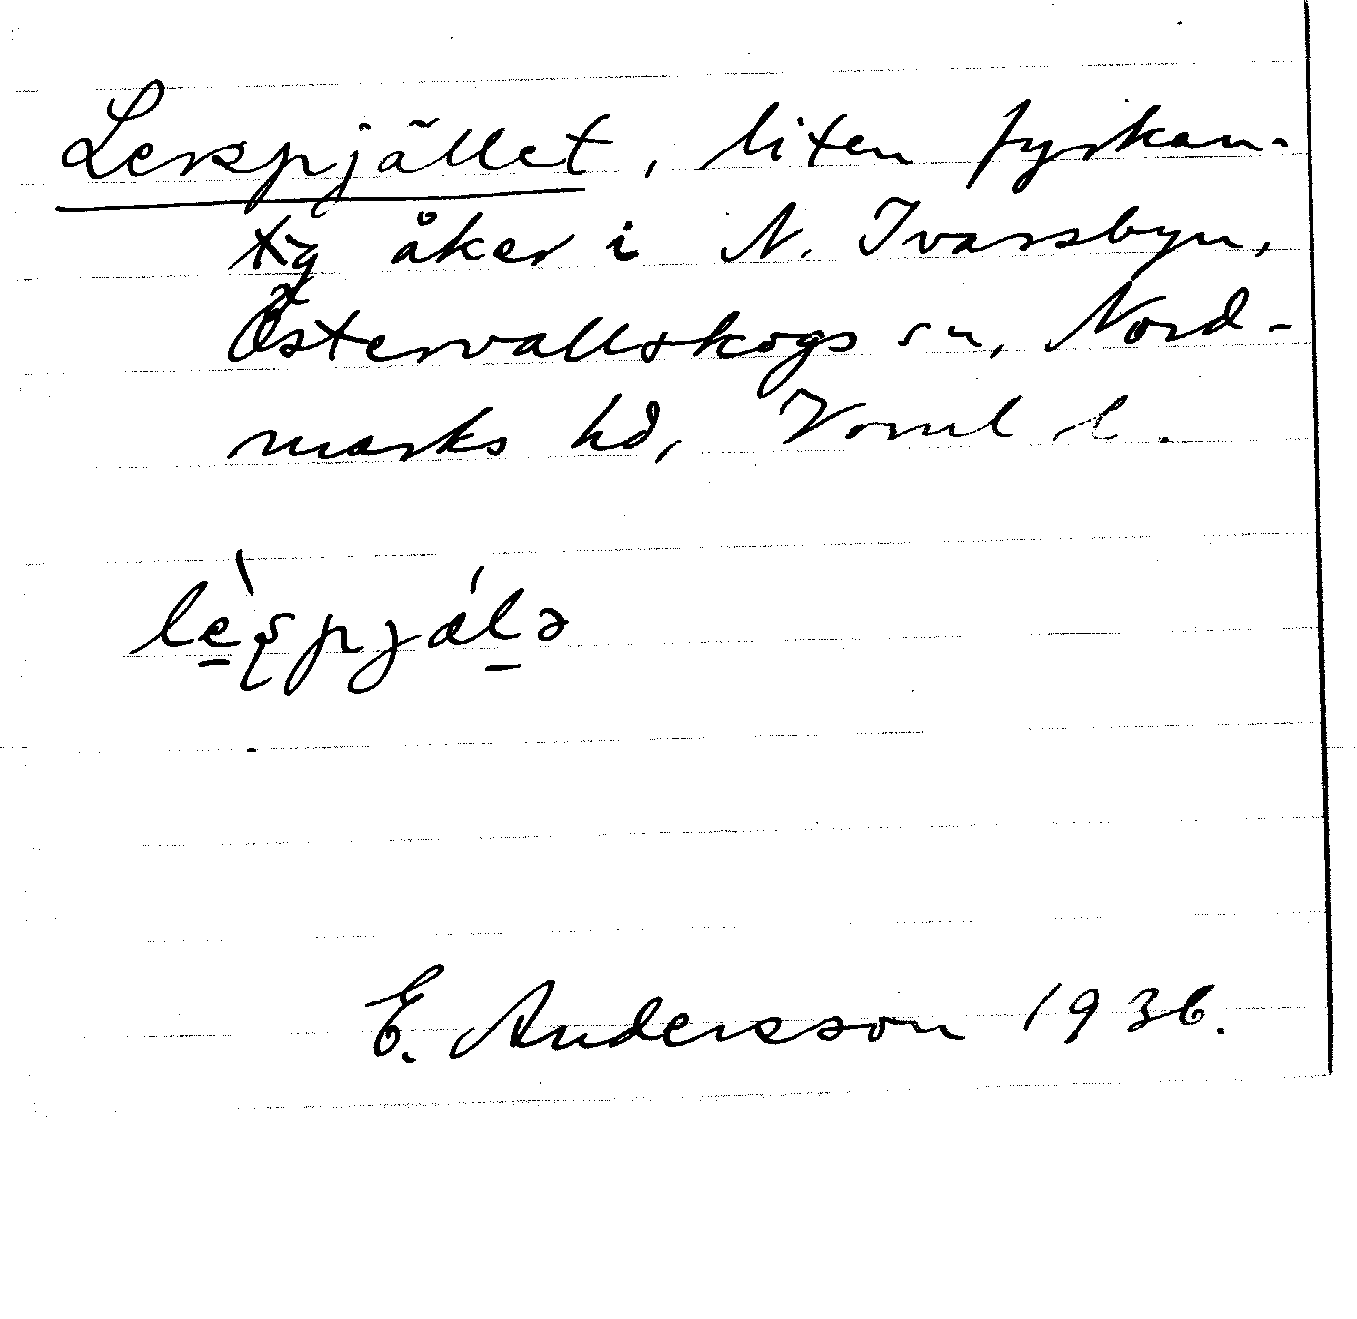 Lerspjället, liten fyrkan-
tig åker i N. Ivarsbyn,
Östervallskogs sn, Nord-
marks hd, Vrml l.
lè̠ʂpjǽl̠ə
E. Andersson 1936.